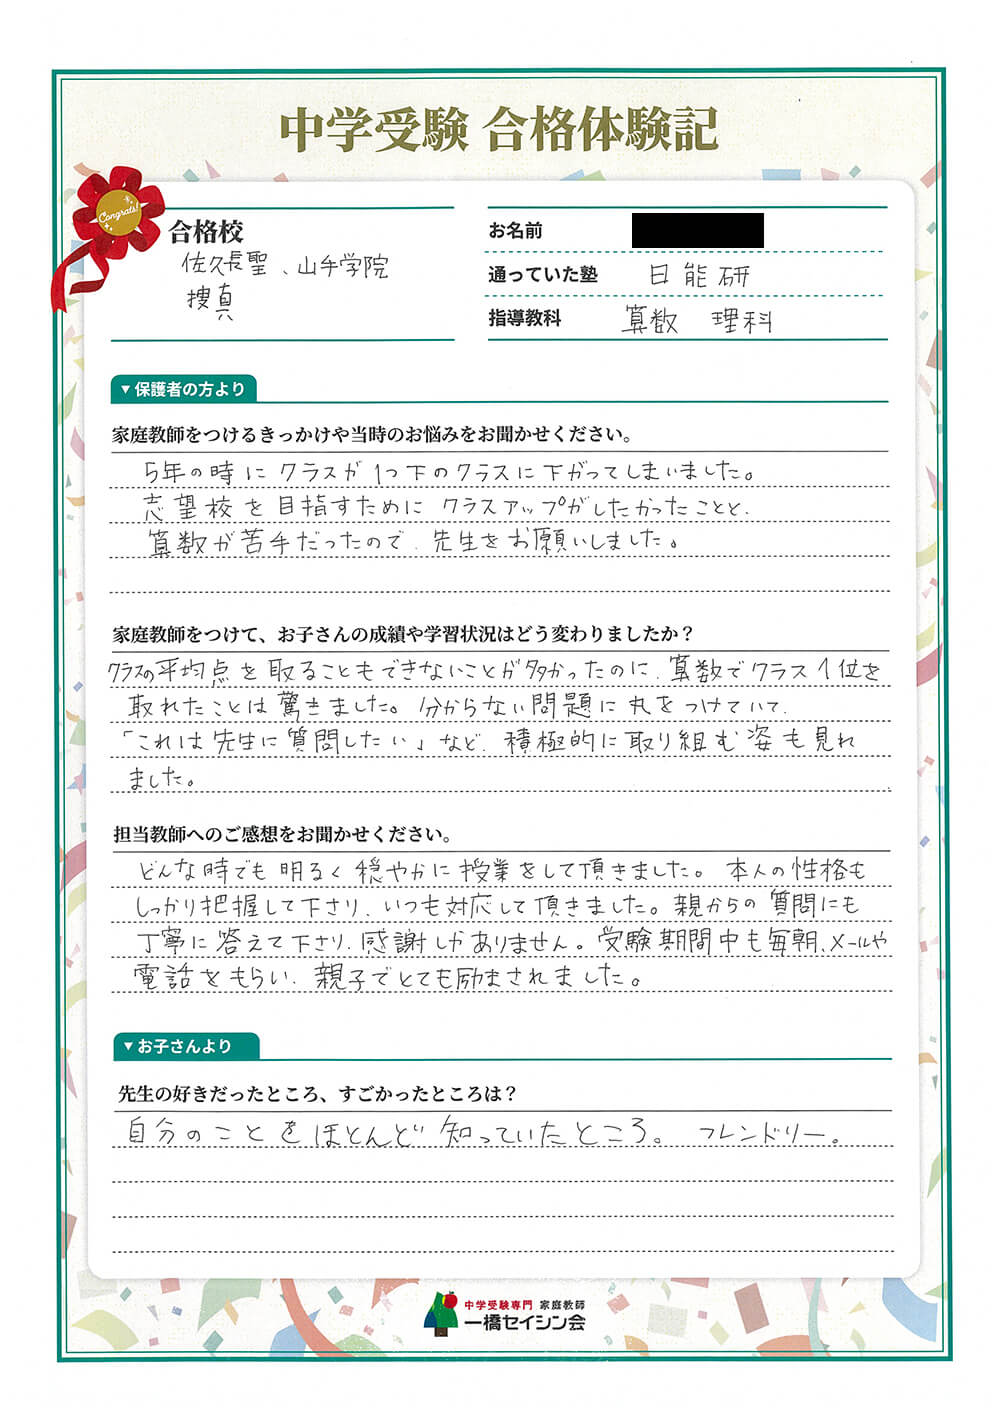 中学受験 合格体験記
Congrats!
合格校
佐久長聖、山手学院
捜真
お名前
通っていた塾 日能研
指導教科 算数 理科
▼保護者の方より
家庭教師をつけるきっかけや当時のお悩みをお聞かせください。
5年の時にクラスが1つ下のクラスに下がってしまいました。
志望校を目指すためにクラスアップがしたかったことと、
算数が苦手だったので、先生をお願いしました。
家庭教師をつけて、お子さんの成績や学習状況はどう変わりましたか?
クラスの平均点を取ることもできないことが多かったのに、算数でクラス1位を
取れたことは驚きました。分からない問題に丸をつけていて、
「これは先生に質問したい」など、積極的に取り組む姿も見れ
ました。
担当教師へのご感想をお聞かせください。
どんな時でも明るく穏やかに授業をして頂きました。本人の性格も
しっかり把握して下さり、いつも対応して頂きました。親からの質問にも
丁寧に答えて下さり、感謝しかありません。受験期間中も毎朝、メールや
電話をもらい、親子でとても励まされました。
▼お子さんより
先生の好きだったところ、すごかったところは?
自分のことをほとんど知っていたところ。 フレンドリー。
中学受験専門 家庭教師
一橋セイシン会